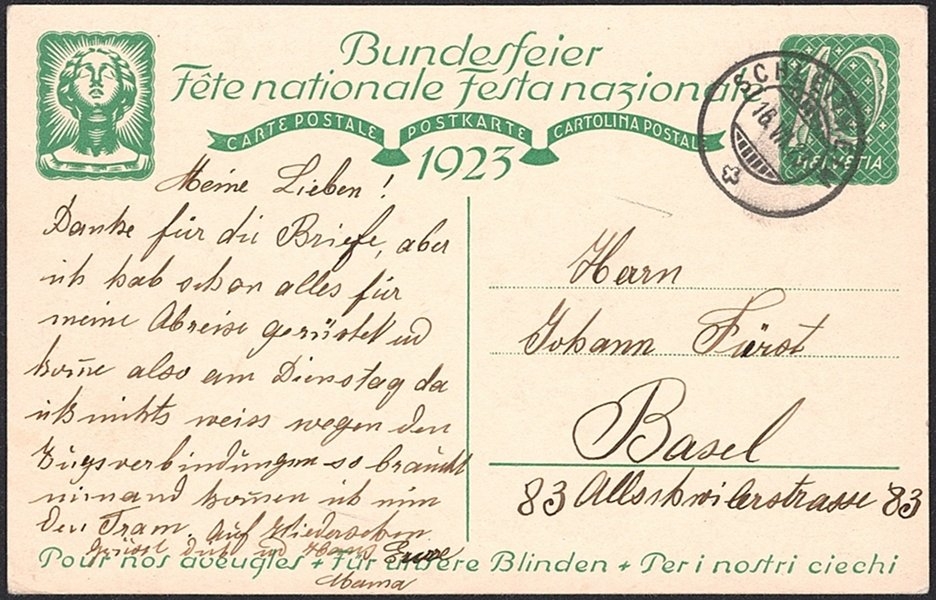 Bundesfeier
Fête nationale Festa nazionale
CARTE POSTALE POSTKARTE CARTOLINA POSTALE
1923
HELVETIA
16. VII.
Meine Lieben!
Danke für die Briefe, aber
ich hab schon alles für
meine Abreise gerüstet ud
kom̅e also am Dienstag da
ich nichts weiss wegen den
Zugsverbindungen so braucht
niemand kom̅en ich nim
den Tram. Auf Wiedersehen
Grüsst Dich ud Hans Eure
Mama
Herrn
Johann Fürst
Basel
83 Allschwilerstrasse 83
Pour nos aveugles + Für unsere Blinden + Per i nostri ciechi